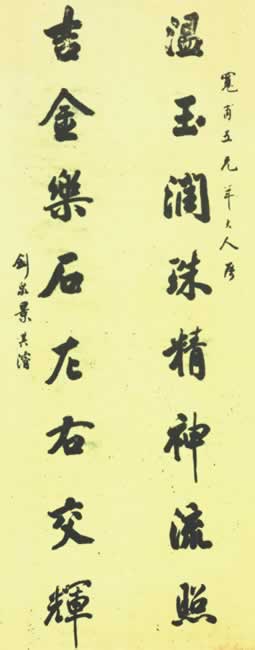 寬甫五兄年大人屬
温玉潤珠精神流照
吉金樂石左右交輝
劍泉景其濬